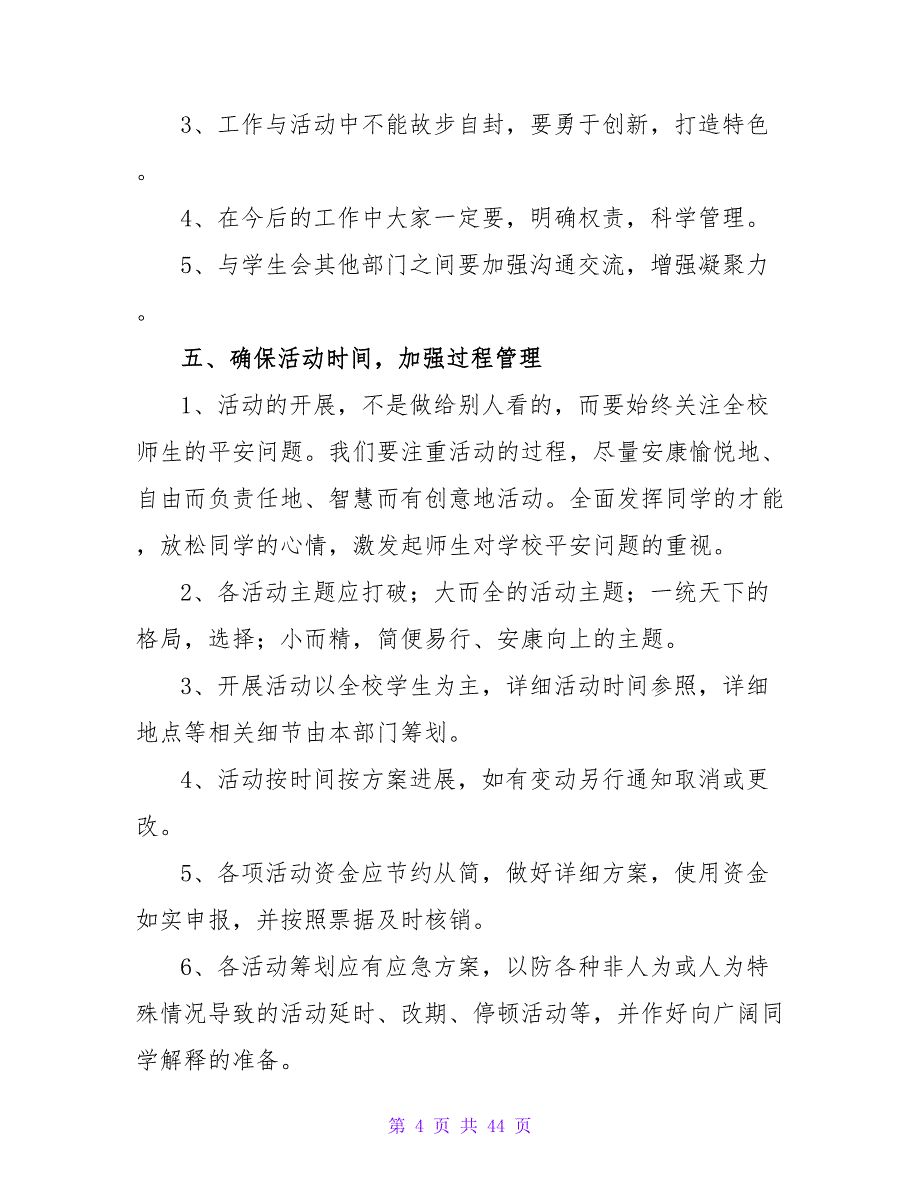 3、工作与活动中不能故步自封，要勇于创新，打造特色
。
4、在今后的工作中大家一定要，明确权责，科学管理。
5、与学生会其他部门之间要加强沟通交流，增强凝聚力
。
五、确保活动时间，加强过程管理
1、活动的开展，不是做给别人看的，而要始终关注全校
师生的平安问题。我们要注重活动的过程，尽量安康愉悦地、
自由而负责任地、智慧而有创意地活动。全面发挥同学的才能
，放松同学的心情，激发起师生对学校平安问题的重视。
2、各活动主题应打破；大而全的活动主题；一统天下的
格局，选择；小而精，简便易行、安康向上的主题。
3、开展活动以全校学生为主，详细活动时间参照，详细
地点等相关细节由本部门筹划。
4、活动按时间按方案进展，如有变动另行通知取消或更
改。
5、各项活动资金应节约从简，做好详细方案，使用资金
如实申报，并按照票据及时核销。
6、各活动筹划应有应急方案，以防各种非人为或人为特
殊情况导致的活动延时、改期、停顿活动等，并作好向广阔同
学解释的准备。
第 4 页 共 44 页